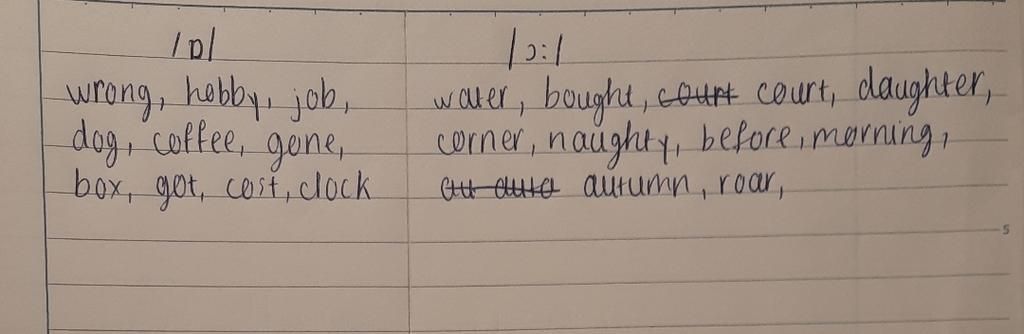 /ɒ/ /ɔ:/
wrong, hobby, job, water, bought, court court, daughter,
dog, coffee, gone, corner, naughty, before, morning,
box, got, cost, clock au auto autumn, roar,
5